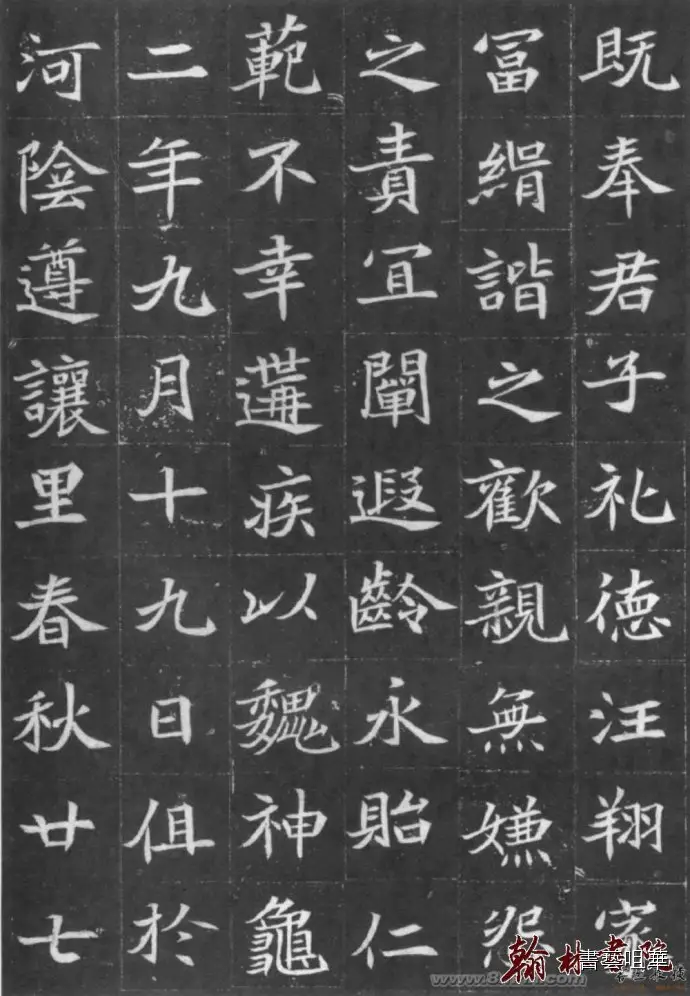 既奉君子礼德汪翔家
冨緝諧之歡親無嫌怨
之責宜闡遐齡永貽仁
範不幸遘疾以魏神龜
二年九月十九日俎於
河陰遵讓里春秋廿七
翰林書院
書藝咀華